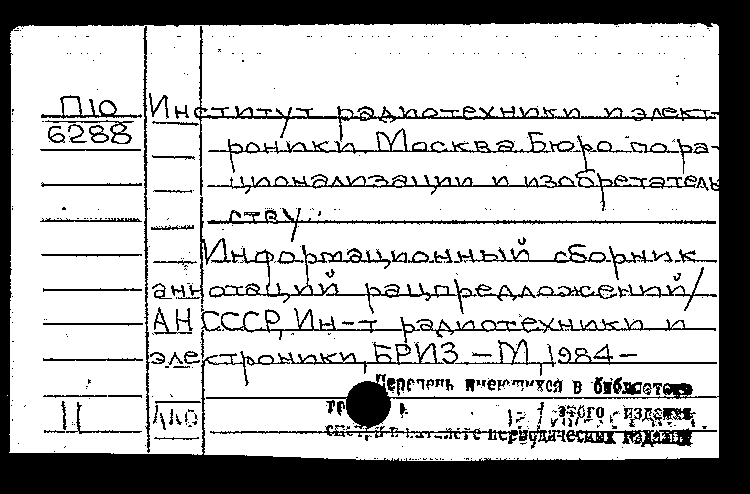 П10 Институт радиотехники и элект-
6288 роники. Москва. Бюро по ра-
ционализации и изобретатель
ству.
Информационный сборник
аннотаций рацпредложений/
АН СССР, Ин-т радиотехники и
электроники, БРИЗ. - М, 1984 -
Перечень имеющихся в библиотеке
этого издания
смотри в каталоге периодических изданий
11